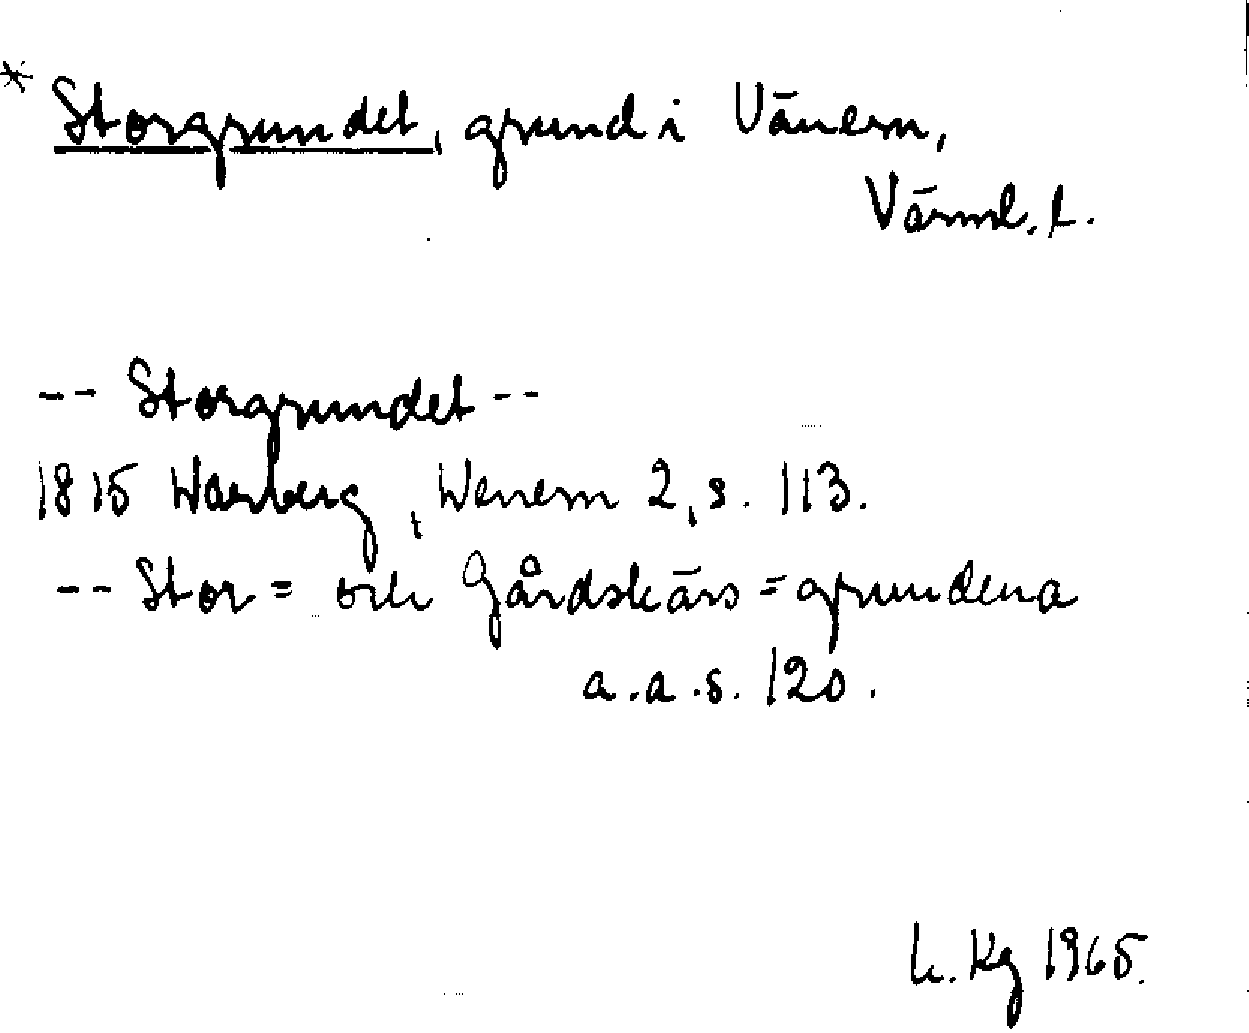 * Storgrundet, grund i Vänern,
Värml. l.
-- Storgrundet --
1815 Warberg, Wenern 2, s. 113.
-- Stor= och Gårdskärs=grundena
a.a.s. 120.
Kg 1965.